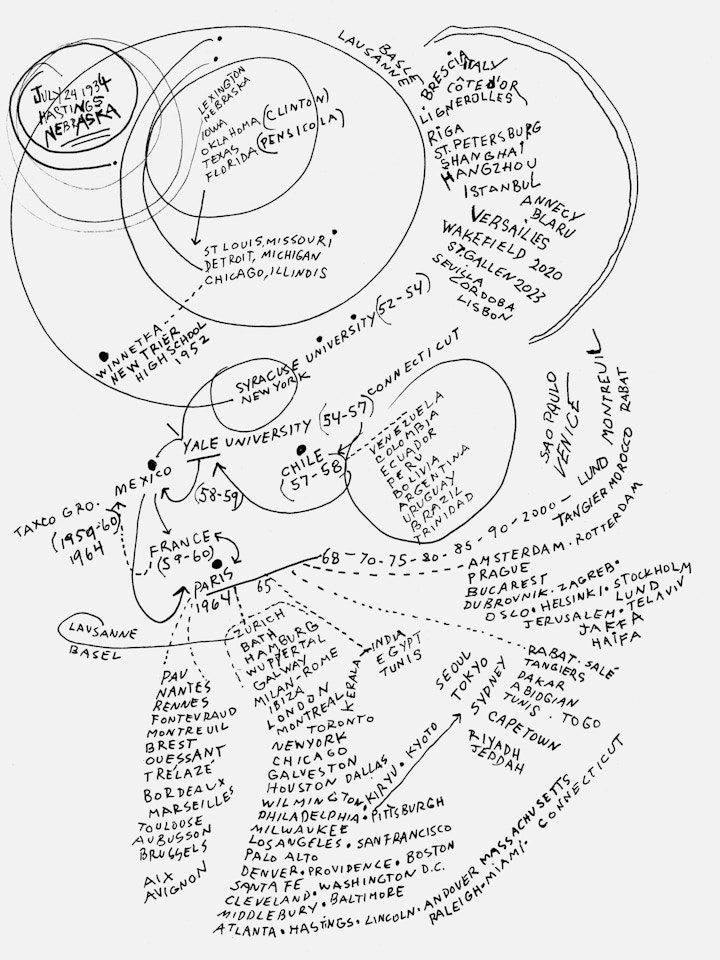 JULY 24 1934
HASTINGS
NEBRASKA
LEXINGTON
NEBRASKA
IOWA
OKLAHOMA (CLINTON)
TEXAS
FLORIDA (PENSICOLA)
ST LOUIS, MISSOURI
DETROIT, MICHIGAN
CHICAGO, ILLINOIS
WINNETKA
NEW TRIER
HIGH SCHOOL
1952
BASLE
LAUSANNE
BRESCIA ITALY
CÔTE D'OR
LIGNEROLLES
RIGA
ST. PETERSBURG
SHANGHAI
HANGZHOU
ISTANBUL
ANNECY
BLARU
VERSAILLES
WAKEFIELD 2020
ST. GALLEN 2023
SEVILLA
CORDOBA
LISBON
SYRACUSE UNIVERSITY (52-54)
NEW YORK
YALE UNIVERSITY (54-57) CONNECTICUT
CHILE
(57-58)
VENEZUELA
COLOMBIA
ECUADOR
PERU
BOLIVIA
ARGENTINA
URUGUAY
BRAZIL
TRINIDAD
SAO PAULO
VENICE
MONTREUIL
RABAT
MEXICO
(58-59)
TAXCO GRO.
(1959-60)
1964
FRANCE
(59-60)
PARIS
1964
65
68-70-75-80-85-90-2000-LUND
TANGIER MOROCCO
AMSTERDAM. ROTTERDAM
PRAGUE
BUCAREST
DUBROVNIK. ZAGREB.
OSLO. HELSINKI. STOCKHOLM
JERUSALEM. LUND
JAFFA TEL AVIV
HAIFA
LAUSANNE
BASEL
ZURICH
BATH
HAMBURG
WUPPERTAL
GALWAY
MILAN-ROME
IBIZA
LONDON
MONTREAL
TORONTO
NEWYORK
CHICAGO
GALVESTON
HOUSTON DALLAS
WILMINGTON
PHILADELPHIA. PITTSBURGH
MILWAUKEE
LOS ANGELES. SAN FRANCISCO
PALO ALTO
DENVER. PROVIDENCE. BOSTON
SANTA FE
CLEVELAND. WASHINGTON D.C.
MIDDLEBURY. BALTIMORE
ATLANTA. HASTINGS. LINCOLN. ANDOVER MASSACHUSETTS
RALEIGH. MIAMI. CONNECTICUT
KERALA
INDIA
EGYPT
TUNIS
KIRYU. KYOTO
SEOUL
TOKYO
SYDNEY
RABAT. SALÉ
TANGIERS
DAKAR
ABIDGIAN
TUNIS. TOGO
CAPETOWN
RIYADH
JEDDAH
PAU
NANTES
RENNES
FONTEVRAUD
MONTREUIL
BREST
OUESSANT
TRÉLAZÉ
BORDEAUX
MARSEILLES
TOULOUSE
AUBUSSON
BRUGGELS
AIX
AVIGNON